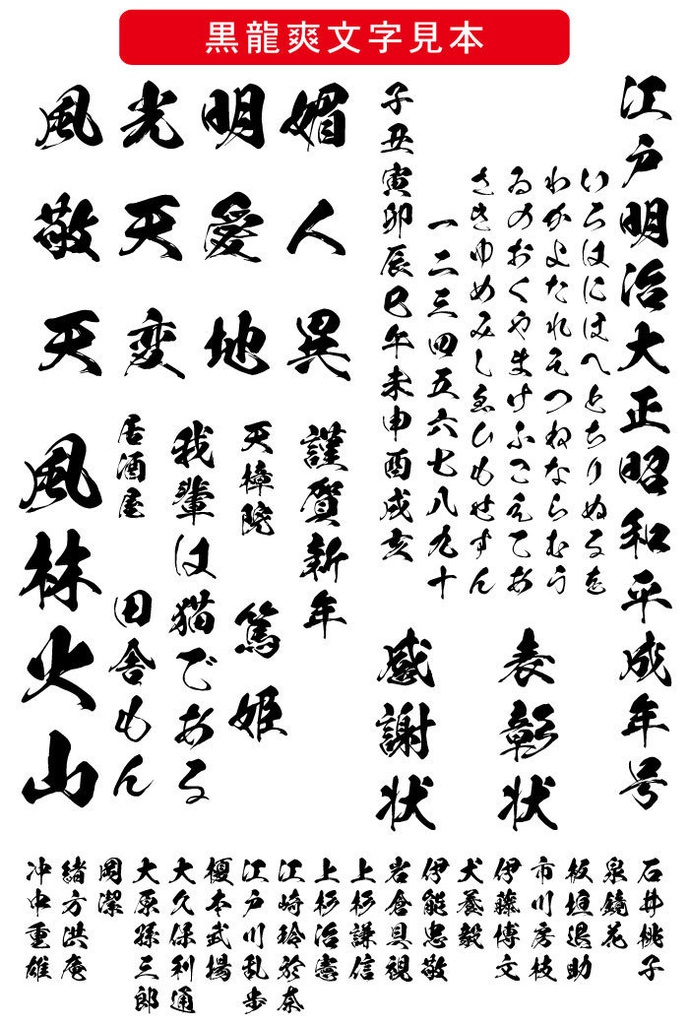 黒龍爽文字見本
江戸明治大正昭和平成年号
いろはにほへとちりぬるを
わかよたれそつねならむう
ゐのおくやまけふこえてあ
さきゆめみしゑひもせすん
一二三四五六七八九十
子丑寅卯辰巳午未申酉戌亥
表彰状
感謝状
風光明媚
敬天愛人
天変地異
謹賀新年
天樟院 篤姫
我輩は猫である
居酒屋 田舎もん
風林火山
石井桃子
泉鏡花
板垣退助
市川房枝
伊藤博文
犬養毅
伊能忠敬
岩倉具視
上杉謙信
上杉治憲
江崎玲於奈
江戸川乱歩
榎本武揚
大久保利通
大原孫三郎
岡潔
緒方洪庵
冲中重雄